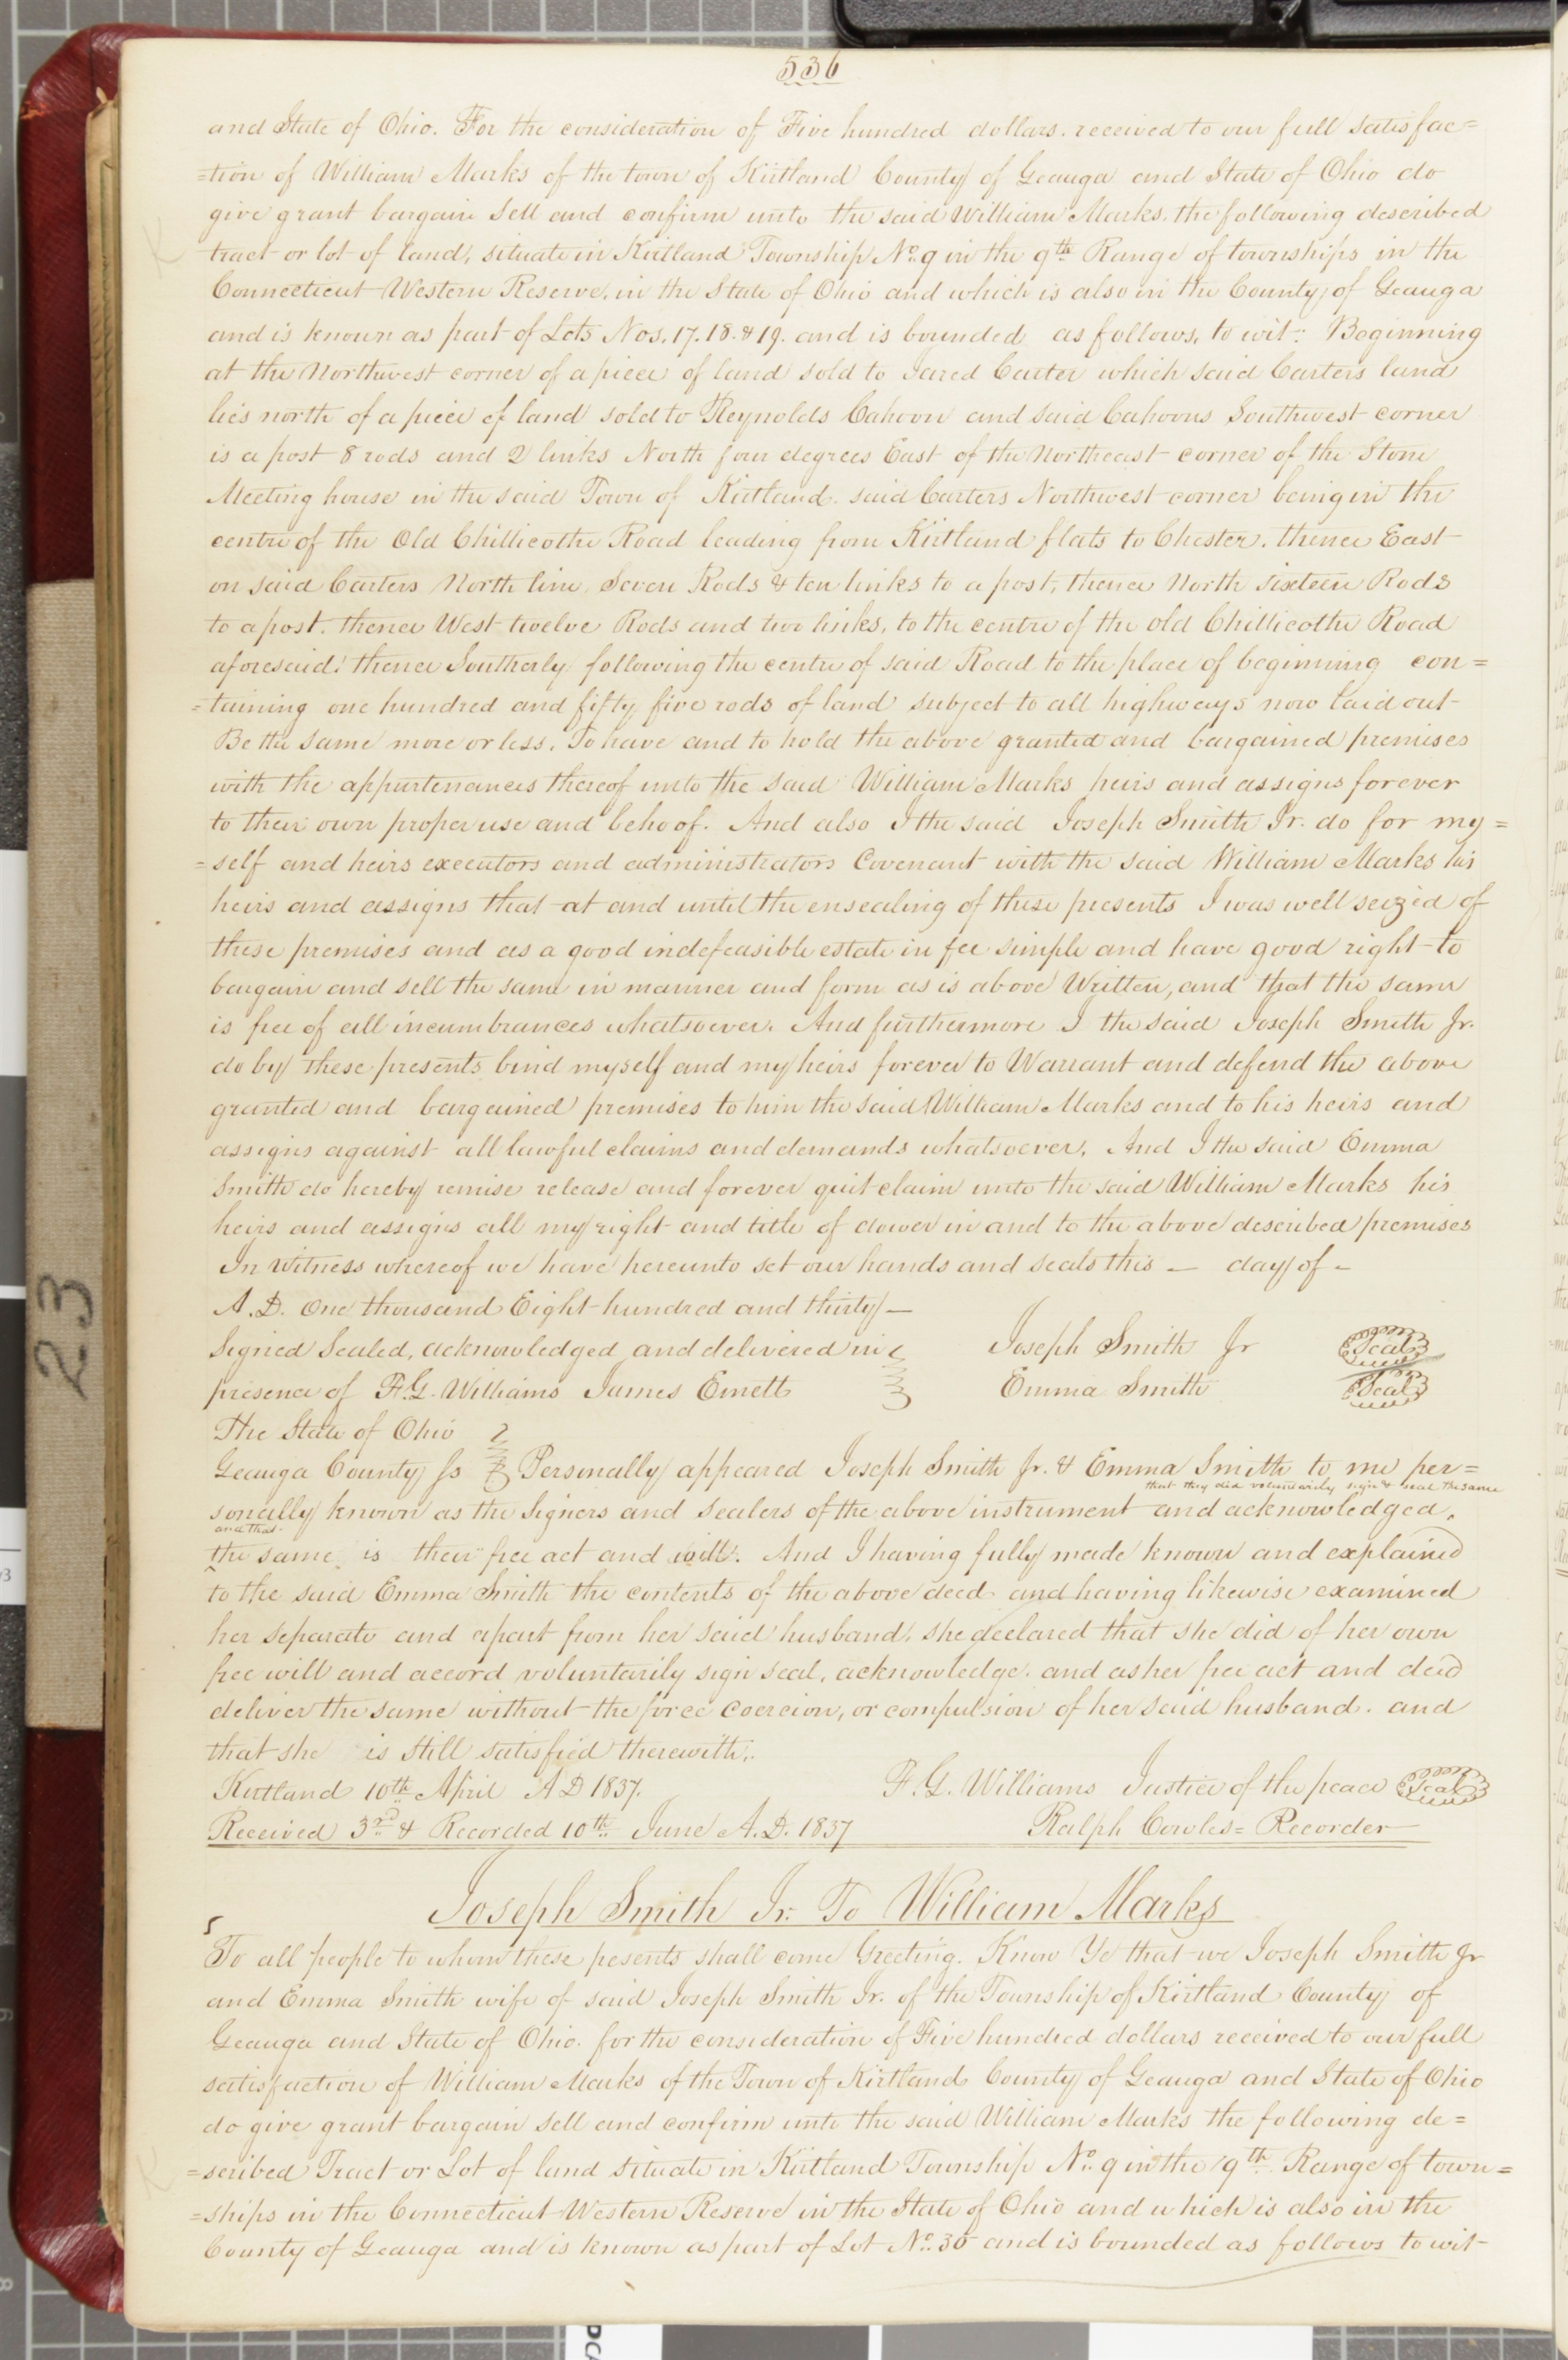 536
and State of Ohio. For the consideration of Five hundred dollars. received to our full satisfac=
=tion of William Marks of the town of Kirtland County of Geauga and State of Ohio do
give grant bargain Sell and confirm unto the said William Marks. the following described
tract or lot of land, situate in Kirtland Township No. 9 in the 9th Range of townships in the
Connecticut Western Reserve, in the State of Ohio and which is also in the County of Geauga
and is known as part of Lots Nos. 17. 18. & 19. and is bounded as follows, to wit: Beginning
at the Northwest corner of a piece of land sold to Jared Carter which said Carters land
lies north of a piece of land sold to Reynolds Cahoon and said Cahoons Southwest corner
is a post 8 rods and 2 links North four degrees East of the Northeast corner of the Stone
Meeting house in the said Town of Kirtland. said Carters Northwest corner being in the
centre of the Old Chillicothe Road leading from Kirtland flats to Chester. thence East
on said Carters North line. Seven Rods & ten links to a post, thence North sixteen Rods
to a post. thence West twelve Rods and two links, to the centre of the old Chillicothe Road
aforesaid! thence Southerly following the centre of said Road to the place of beginning con=
=taining one hundred and fifty five rods of land subject to all highways now laid out
Be the same more or less. To have and to hold the above granted and bargained premises
with the appurtenances thereof unto the said William Marks heirs and assigns forever
to their own proper use and behoof. And also I the said Joseph Smith Jr. do for my=
=self and heirs executors and administrators Covenant with the said William Marks his
heirs and assigns that at and until the ensealing of these presents I was well seized of
these premises and as a good indefeasible estate in fee simple and have good right to
bargain and sell the same in manner and form as is above Written, and that the same
is free of all incumbrances whatsoever. And furthermore I the said Joseph Smith Jr.
do by these presents bind myself and my heirs forever to Warrant and defend the above
granted and bargained premises to him the said William Marks and to his heirs and
assigns against all lawful claims and demands whatsoever. And I the said Emma
Smith do hereby remise release and forever quit claim unto the said William Marks his
heirs and assigns all my right and title of dower in and to the above described premises
In Witness whereof we have hereunto set our hands and seals this — day of -
A.D. One thousand Eight hundred and thirty —
Signed Sealed, acknowledged and delivered in Joseph Smith Jr Seal
presence of F.G. Williams James Emett Emma Smith Seal
The State of Ohio
Geauga County Ss Personally appeared Joseph Smith Jr. & Emma Smith to me per=
that they did voluntarily sign & seal the same
sonally known as the Signers and Sealers of the above instrument and acknowledged.
and that
the same is their free act and will. And I having fully made known and explained
to the said Emma Smith the contents of the above deed and having likewise examined
her separate and apart from her said husband, she declared that she did of her own
free will and accord voluntarily sign seal, acknowledge. and as her free act and deed
deliver the same without the force coercion, or compulsion of her said husband. and
that she is still satisfied therewith.
Kirtland 10th April A D 1837. F. G. Williams Justice of the peace Seal
Received 3rd & Recorded 10th June A.D. 1837 Ralph Cowles= Recorder
Joseph Smith Jr. To William Marks
To all people to whom these pesents shall come Greeting. Know Ye that we Joseph Smith Jr
and Emma Smith wife of said Joseph Smith Jr. of the Township of Kirtland County of
Geauga and State of Ohio. for the consideration of Five hundred dollars received to our full
satisfaction of William Marks of the Town of Kirtland County of Geauga and State of Ohio
do give grant bargain Sell and confirm unto the said William Marks the following de=
=scribed Tract or Lot of land situate in Kirtland Township No. 9 in the 9th Range of town=
=ships in the Connecticut Western Reserve in the State of Ohio and which is also in the
County of Geauga and is known as part of Lot No. 30 and is bounded as follows to wit
23